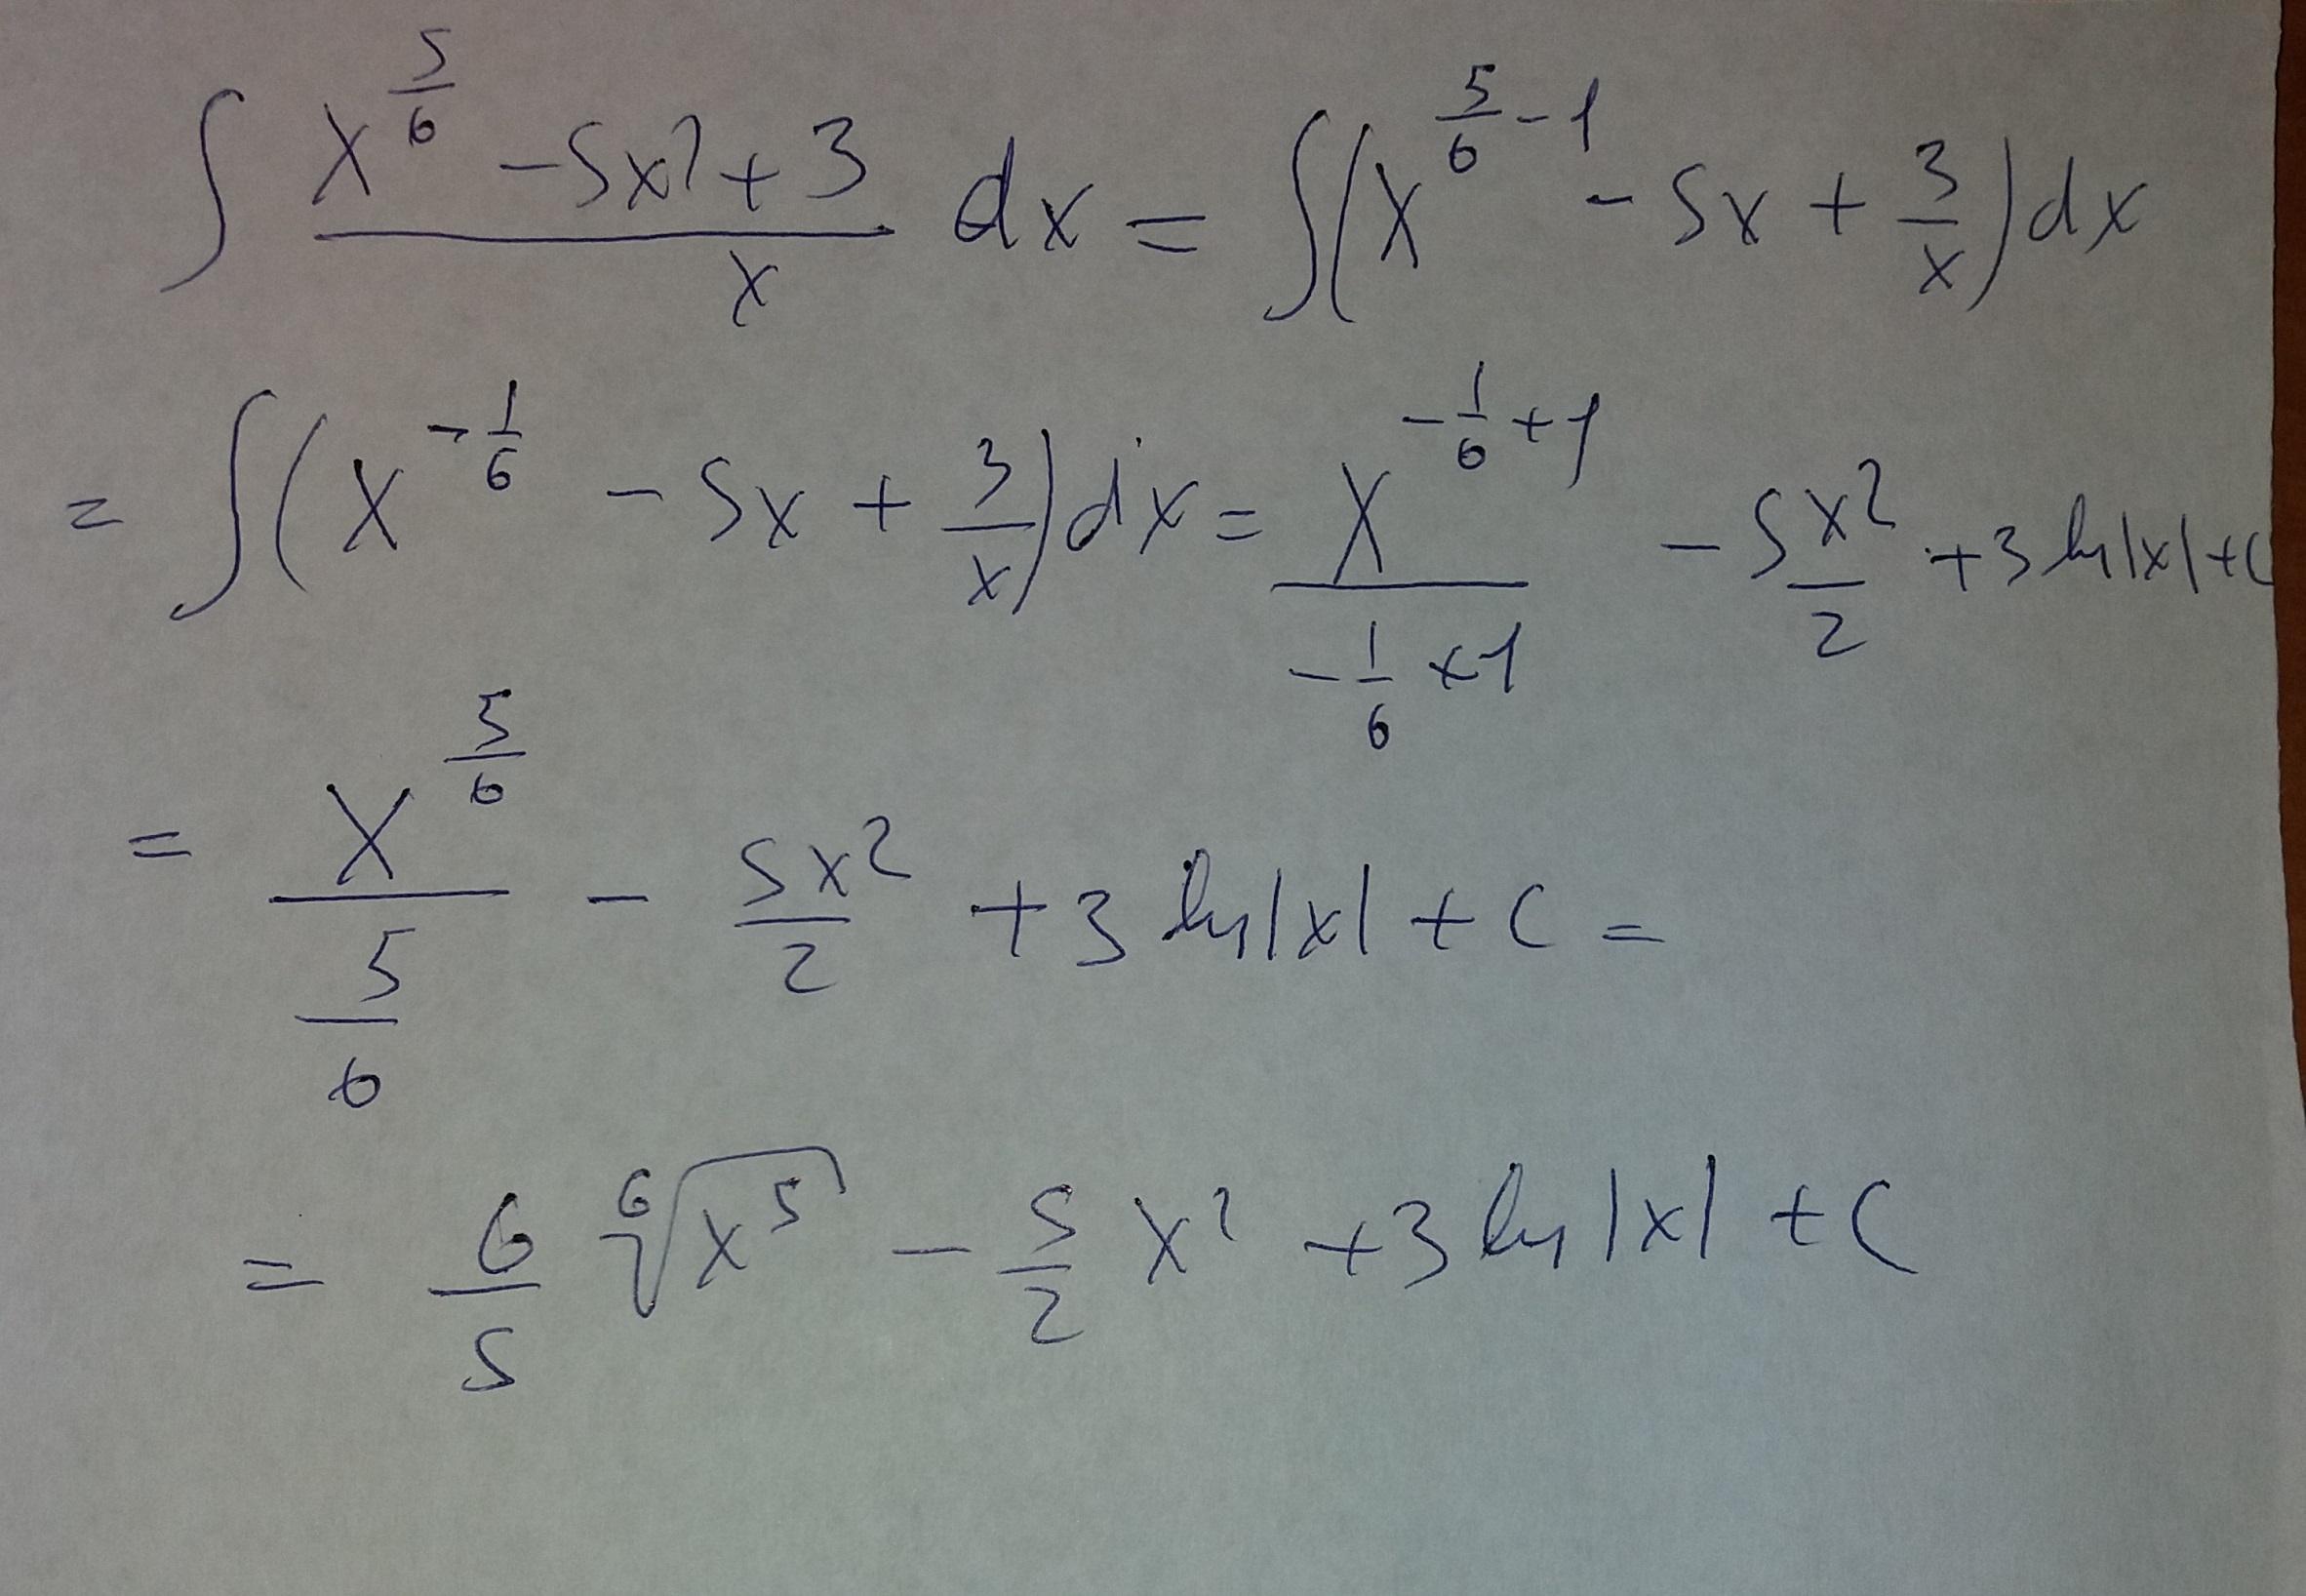 ∫ (x^(5/6) - 5x² + 3)/x dx = ∫(x^(5/6 - 1) - 5x + 3/x)dx
= ∫(x^(-1/6) - 5x + 3/x)dx = x^(-1/6 + 1)/(-1/6 + 1) - 5x²/2 + 3 ln|x| + C
= x^(5/6)/(5/6) - 5x²/2 + 3 ln|x| + C =
= 6/5 ⁶√(x⁵) - 5/2 x² + 3 ln|x| + C